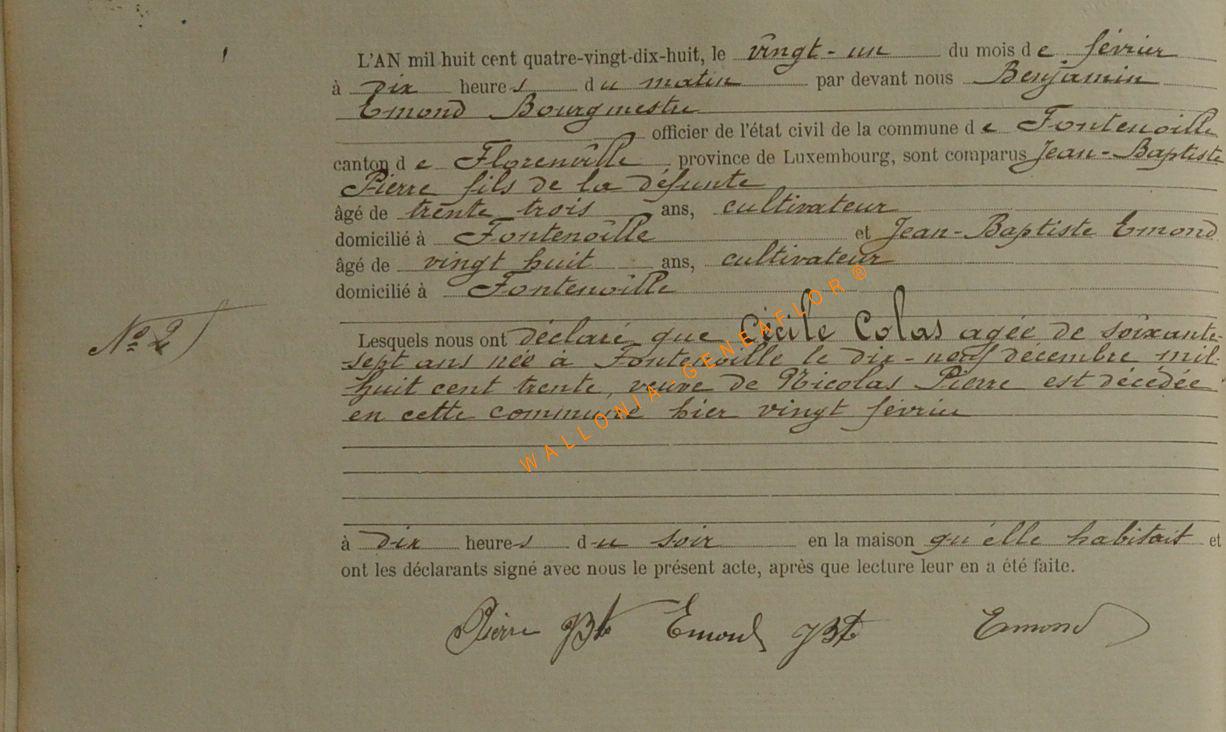 L'AN mil huit cent quatre-vingt-dix-huit, le vingt-un du mois de février
à dix heures du matin par devant nous Benjamin
Emond Bourgmestre
officier de l'état civil de la commune de Fontenoille
canton de Florenville province de Luxembourg, sont comparus Jean-Baptiste
Pierre fils de la défunte
âgé de trente trois ans, cultivateur
domicilié à Fontenoille et Jean-Baptiste Emond
âgé de vingt huit ans, cultivateur
domicilié à Fontenoille
No 2
Lesquels nous ont déclaré que Cécile Colas agée de soixante-
sept ans née à Fontenoille le dix-neuf décembre mil
huit cent trente, veuve de Nicolas Pierre est décédée
en cette commune hier vingt février
à dix heures du soir en la maison qu'elle habitait et
ont les déclarants signé avec nous le présent acte, après que lecture leur en a été faite.
Pierre JBte Emond JBte Emond
WALLONIA-GENEAFLOR ©